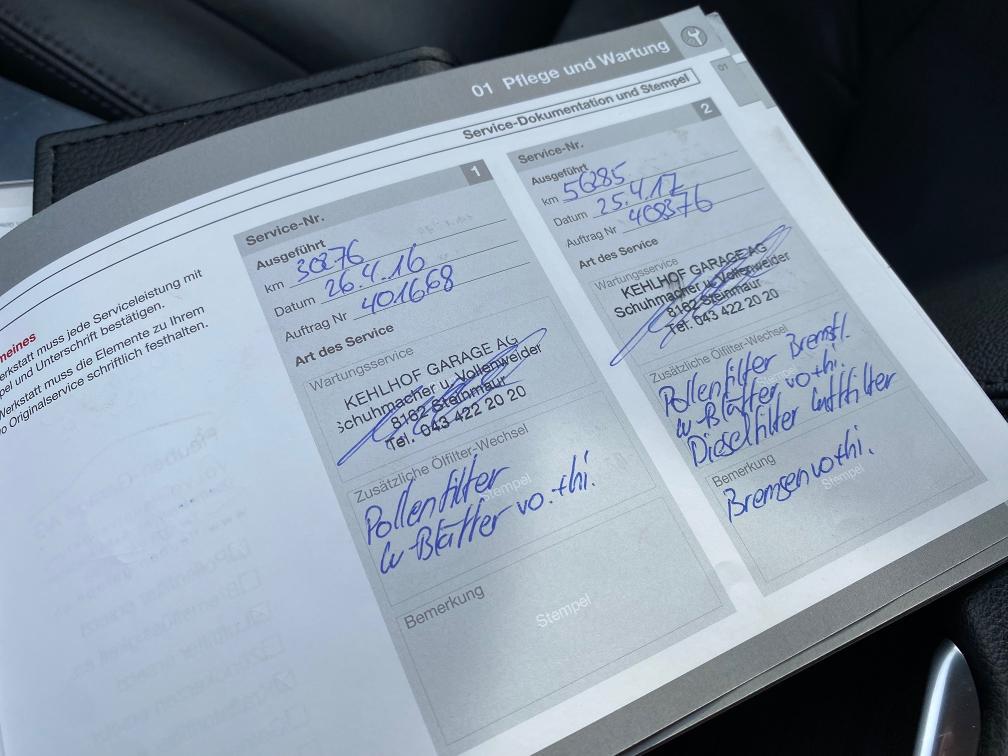 01 Pflege und Wartung
01
Service-Dokumentation und Stempel
meines
erkstatt muss jede Serviceleistung mit
pel und Unterschrift bestätigen.
Werkstatt muss die Elemente zu Ihrem
o Originalservice schriftlich festhalten.
Service-Nr. 1
Ausgeführt
km 30276
Datum 26.4.16
Auftrag Nr 401668
Art des Service
Wartungsservice
KEHLHOF GARAGE AG
Schuhmacher u. Vollenweider
8162 Steinmaur
Tel. 043 422 20 20
Zusätzliche Ölfilter-Wechsel
Pollenfilter
Stempel
W-Blätter vo.+hi.
Bemerkung
Stempel
Service-Nr. 2
Ausgeführt
km 56285
Datum 25.4.17
Auftrag Nr 408376
Art des Service
Wartungsservice
KEHLHOF GARAGE AG
Schuhmacher u. Vollenweider
8162 Steinmaur
Tel. 043 422 20 20
Zusätzliche Ölfilter-Wechsel
Pollenfilter Bremsfl.
Stempel
W-Blätter vo+hi.
Dieselfilter Luftfilter
Bemerkung
Bremsen vo+hi.
Stempel